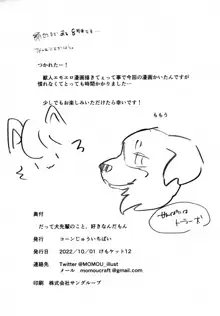 つかれたー！
獣人エモエロ漫画描きてぇって事で今回の漫画かいたんですが
慣れなくてとっても時間かかりました…
少しでもお楽しみいただけたら幸いです！
ももう
奥付
だって犬先輩のこと、好きなんだもん
発行 コーンじゅういちばい
発行日 2022／10／01 けもケット12
連絡先 Twitter @MOMOU_illust
メール momoucraft@gmail.com
印刷 株式会社サングループ